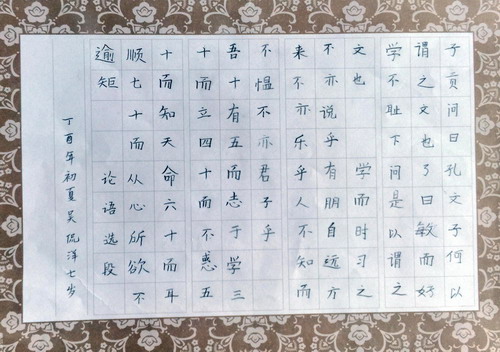 子贡问曰孔文子何以
谓之文也了曰敏而好
学不耻下问是以谓之
文也 学而时习之
不亦说乎有朋自远方
来不亦乐乎人不知而
不愠不亦君子乎
吾十有五而志于学三
十而立四十而不惑五
十而知天命六十而耳
顺七十而从心所欲不
逾矩 论语选段
丁酉年初夏吴侃洋七岁